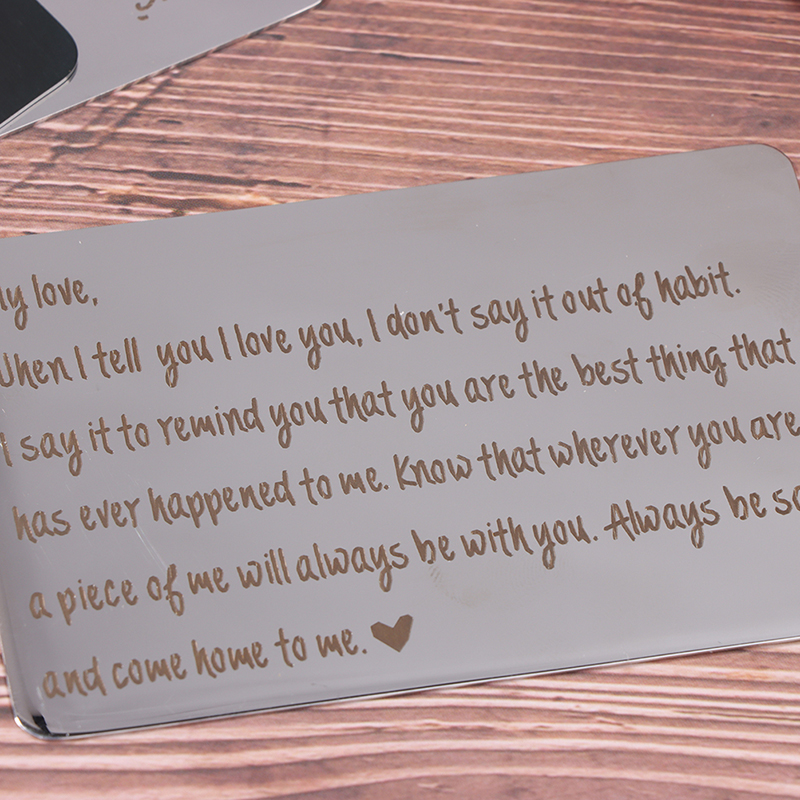 ly love,
When I tell you I love you, I don't say it out of habit.
I say it to remind you that you are the best thing that
has ever happened to me. Know that wherever you are
a piece of me will always be with you. Always be sa
and come home to me. ♥